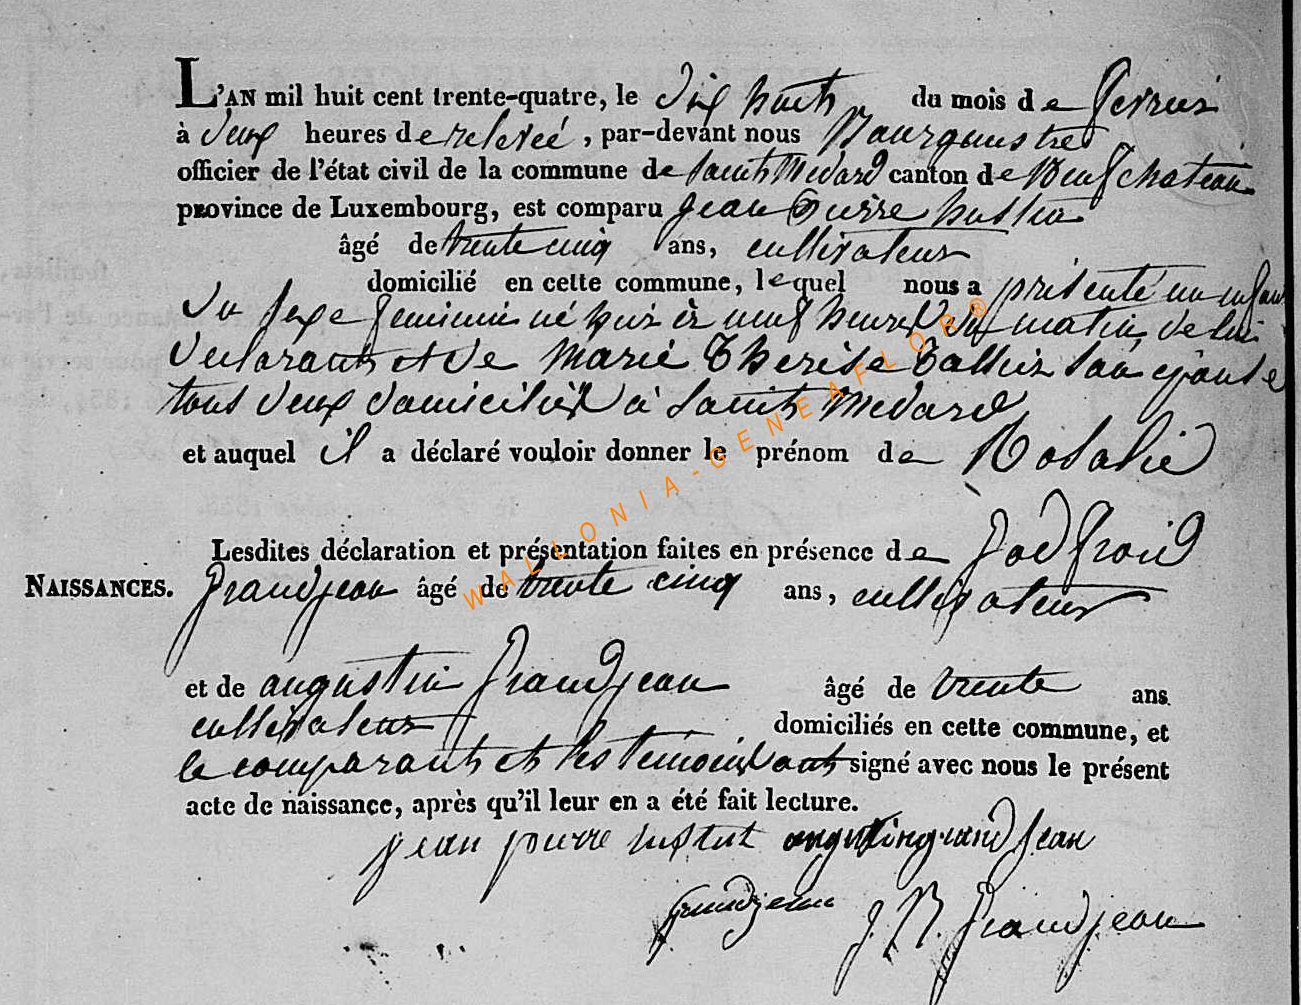 L'AN mil huit cent trente-quatre, le dix huit du mois de fevrier
à deux heures de relevée, par-devant nous Bourgmestre
officier de l'état civil de la commune de Saint Medard canton de Neufchateau
province de Luxembourg, est comparu jean Pierre
âgé de trente cinq ans, cultivateur
domicilié en cette commune, lequel nous a présenté un enfant
du sexe feminin né hier à neuf heures du matin, de lui
declarant et de Marie Therese Tallier son épouse
tous deux domiciliés à Saint Medard
et auquel il a déclaré vouloir donner le prénom de Rosalie
Lesdites déclaration et présentation faites en présence de Godfroid
NAISSANCES. Grandjean âgé de trente cinq ans, cultivateur
et de augustin Grandjean âgé de trente ans
cultivateur domiciliés en cette commune, et
le comparant et les témoins ont signé avec nous le présent
acte de naissance, après qu'il leur en a été fait lecture.
jean pierre augustin grand Jean
grandjean J. N. Grandjean
WALLONIA-GENEAFLOR®